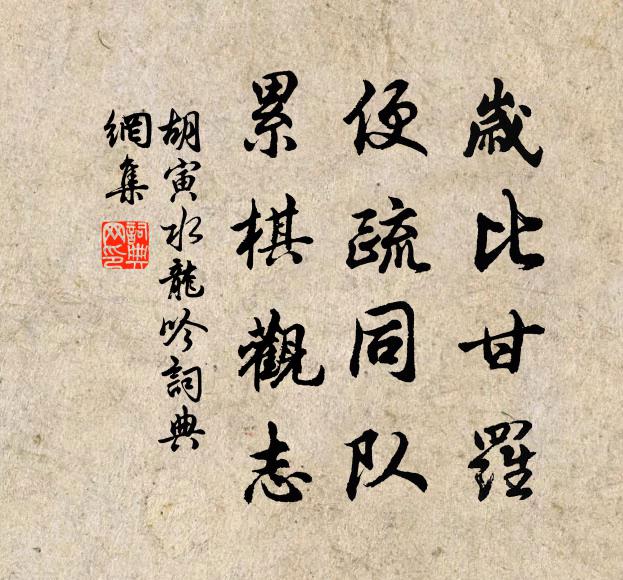 歲比甘羅
便疏同队
累棋觀志
胡寅水龍吟詞典
網集
詞典
网印